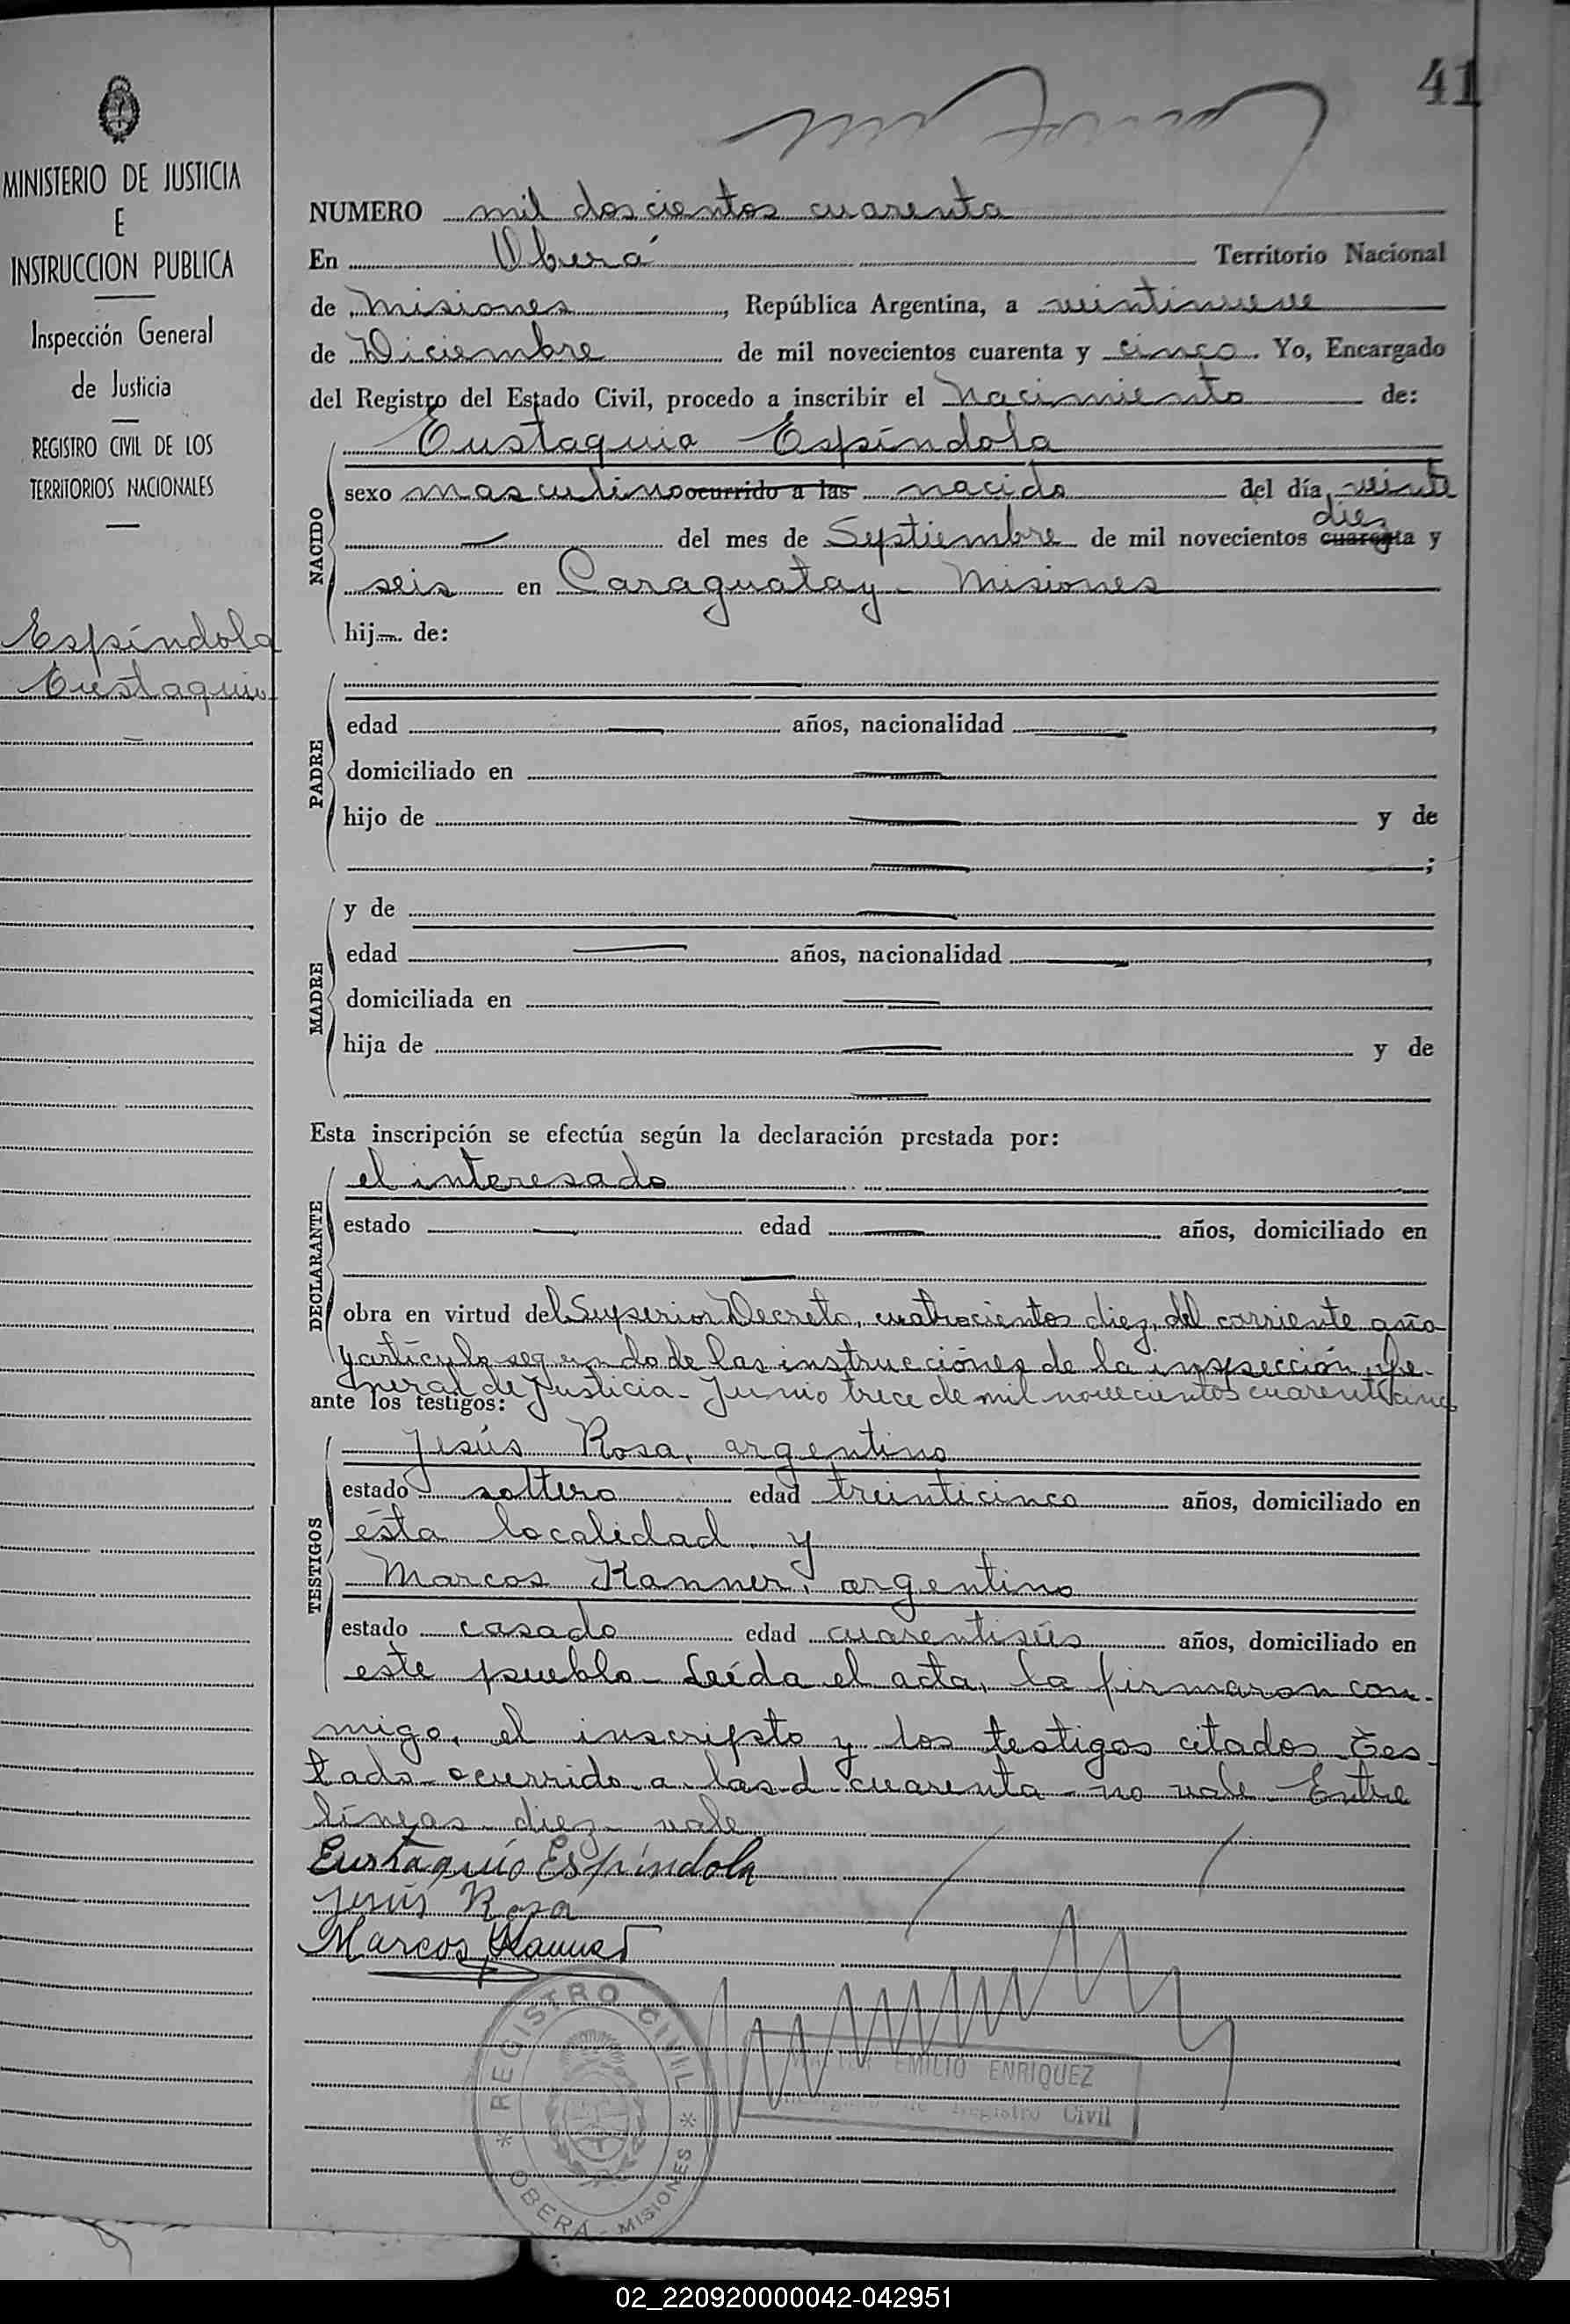 41
MINISTERIO DE JUSTICIA
E
INSTRUCCION PUBLICA
Inspección General
de Justicia
REGISTRO CIVIL DE LOS
TERRITORIOS NACIONALES
Espíndola
Eustaquio
NUMERO mil doscientos cuarenta
En Oberá Territorio Nacional
de Misiones, República Argentina, a veintinueve
de Diciembre de mil novecientos cuarenta y cinco. Yo, Encargado
del Registro del Estado Civil, procedo a inscribir el Nacimiento de:
NACIDO
Eustaquio Espíndola
sexo masculino ocurrido a las nacido del día veinte
diez
— del mes de Septiembre de mil novecientos cuarenta y
seis en Caraguatay - Misiones
hij— de:
PADRE
—
edad — años, nacionalidad —,
domiciliado en —
hijo de — y de
—;
MADRE
y de —
edad — años, nacionalidad —,
domiciliada en —
hija de — y de
—
Esta inscripción se efectúa según la declaración prestada por:
DECLARANTE
el interesado
estado — edad — años, domiciliado en
—
obra en virtud del Superior Decreto, cuatrocientos diez, del corriente año
y artículo segundo de las instrucciones de la inspección Ge-
neral de Justicia - Junio trece de mil novecientos cuarenticinco
ante los testigos:
TESTIGOS
Jesús Rosa, argentino
estado soltero edad treinticinco años, domiciliado en
ésta localidad y
Marcos Kanner, argentino
estado casado edad cuarentiseis años, domiciliado en
este pueblo - Leída el acta, la firmaron con-
migo, el inscripto y los testigos citados - Tes-
tado - ocurrido a las - d - cuarenta - no vale - Entre
líneas - diez - vale
Eustaquio Espíndola
Jesús Rosa
Marcos Kanner
REGISTRO CIVIL
OBERA - MISIONES
EMILIO ENRIQUEZ
Encargado de Registro Civil
02_220920000042-042951